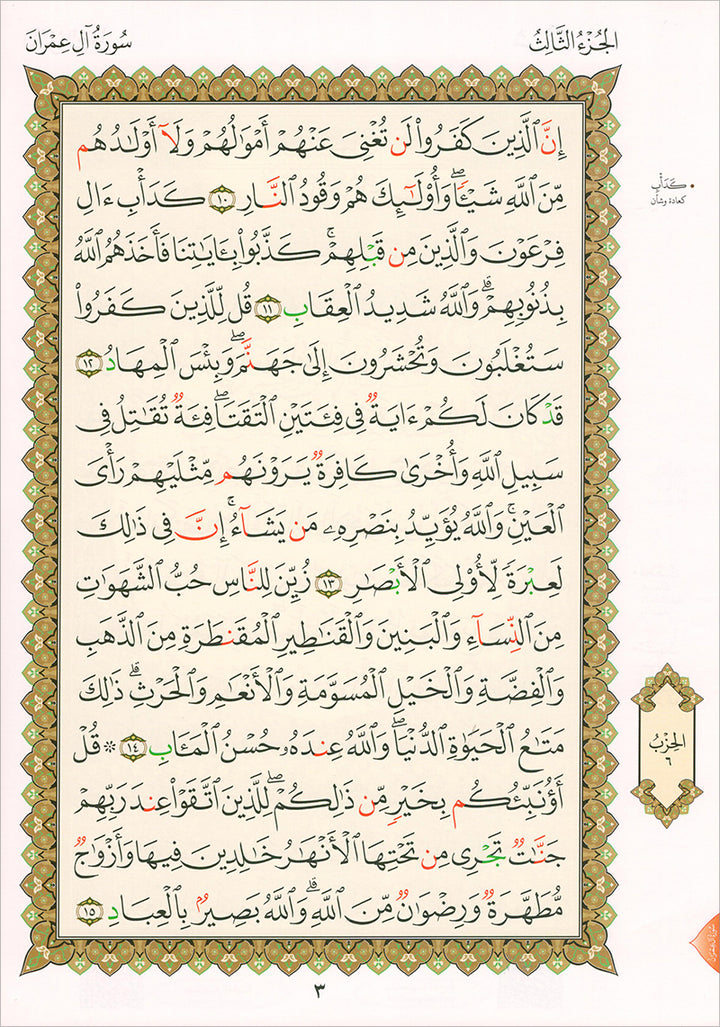 الجُزْءُ الثَّالِثُ
سُورَةُ آلِ عِمْرَانَ
إِنَّ ٱلَّذِينَ كَفَرُوا۟ لَن تُغْنِىَ عَنْهُمْ أَمْوَٰلُهُمْ وَلَآ أَوْلَـٰدُهُم
مِّنَ ٱللَّهِ شَيْـًٔا ۖ وَأُو۟لَـٰٓئِكَ هُمْ وَقُودُ ٱلنَّارِ ١٠ كَدَأْبِ ءَالِ
فِرْعَوْنَ وَٱلَّذِينَ مِن قَبْلِهِمْ ۚ كَذَّبُوا۟ بِـَٔايَـٰتِنَا فَأَخَذَهُمُ ٱللَّهُ
بِذُنُوبِهِمْ ۗ وَٱللَّهُ شَدِيدُ ٱلْعِقَابِ ١١ قُل لِّلَّذِينَ كَفَرُوا۟
سَتُغْلَبُونَ وَتُحْشَرُونَ إِلَىٰ جَهَنَّمَ ۖ وَبِئْسَ ٱلْمِهَادُ ١٢
قَدْ كَانَ لَكُمْ ءَايَةٌ فِى فِئَتَيْنِ ٱلْتَقَتَا ۖ فِئَةٌ تُقَـٰتِلُ فِى
سَبِيلِ ٱللَّهِ وَأُخْرَىٰ كَافِرَةٌ يَرَوْنَهُم مِّثْلَيْهِمْ رَأْىَ
ٱلْعَيْنِ ۚ وَٱللَّهُ يُؤَيِّدُ بِنَصْرِهِۦ مَن يَشَآءُ ۗ إِنَّ فِى ذَٰلِكَ
لَعِبْرَةً لِّأُو۟لِى ٱلْأَبْصَـٰرِ ١٣ زُيِّنَ لِلنَّاسِ حُبُّ ٱلشَّهَوَٰتِ
مِنَ ٱلنِّسَآءِ وَٱلْبَنِينَ وَٱلْقَنَـٰطِيرِ ٱلْمُقَنطَرَةِ مِنَ ٱلذَّهَبِ
وَٱلْفِضَّةِ وَٱلْخَيْلِ ٱلْمُسَوَّمَةِ وَٱلْأَنْعَـٰمِ وَٱلْحَرْثِ ۗ ذَٰلِكَ
مَتَـٰعُ ٱلْحَيَوٰةِ ٱلدُّنْيَا ۖ وَٱللَّهُ عِندَهُۥ حُسْنُ ٱلْمَـَٔابِ ١٤ * قُلْ
أَؤُنَبِّئُكُم بِخَيْرٍ مِّن ذَٰلِكُمْ ۖ لِلَّذِينَ ٱتَّقَوْا۟ عِندَ رَبِّهِمْ
جَنَّـٰتٌ تَجْرِى مِن تَحْتِهَا ٱلْأَنْهَـٰرُ خَـٰلِدِينَ فِيهَا وَأَزْوَٰجٌ
مُّطَهَّرَةٌ وَرِضْوَٰنٌ مِّنَ ٱللَّهِ ۗ وَٱللَّهُ بَصِيرٌۢ بِٱلْعِبَادِ ١٥
• كَدَأْبِ
كعادة وشأن
الحِزْبُ
٦
٣